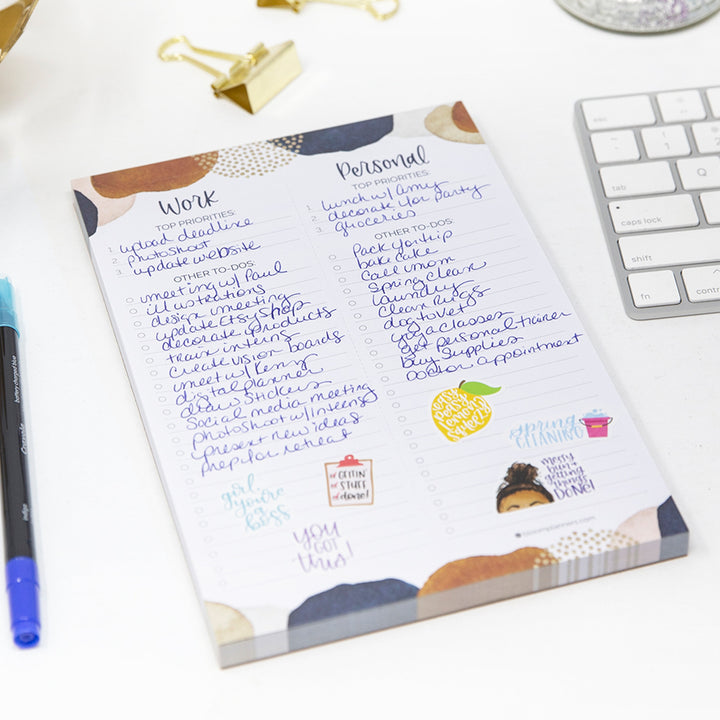 Work
TOP PRIORITIES:
1. upload deadline
2. photoshoot
3. update website
OTHER TO-DOS:
meeting w/ Paul
illustrations
design meeting
update Etsy Shop
decorate products
train interns
create vision boards
meet w/ Kenny
digital planner
draw stickers
Social media meeting
photoshoot w/ Interns
present new ideas
prep for retreat
girl
you're
a boss
#GETTIN'
#STUFF
#done!
YOU
GOT
this!
Personal
TOP PRIORITIES:
1. lunch w/ amy
2. decorate for party
3. groceries
OTHER TO-DOS:
Pack for trip
bake cake
Call mom
Spring Clean
laundry
Clean Rugs
dog to vet
yoga classes
get personal trainer
Buy Supplies
Doctor appointment
easy
peasy
lemon
squeezy
spring
CLEANING
messy
bun +
getting
things
DONE!
bloomplanners.com
esc
1
tab
Q
caps lock
A
shift
fn
control